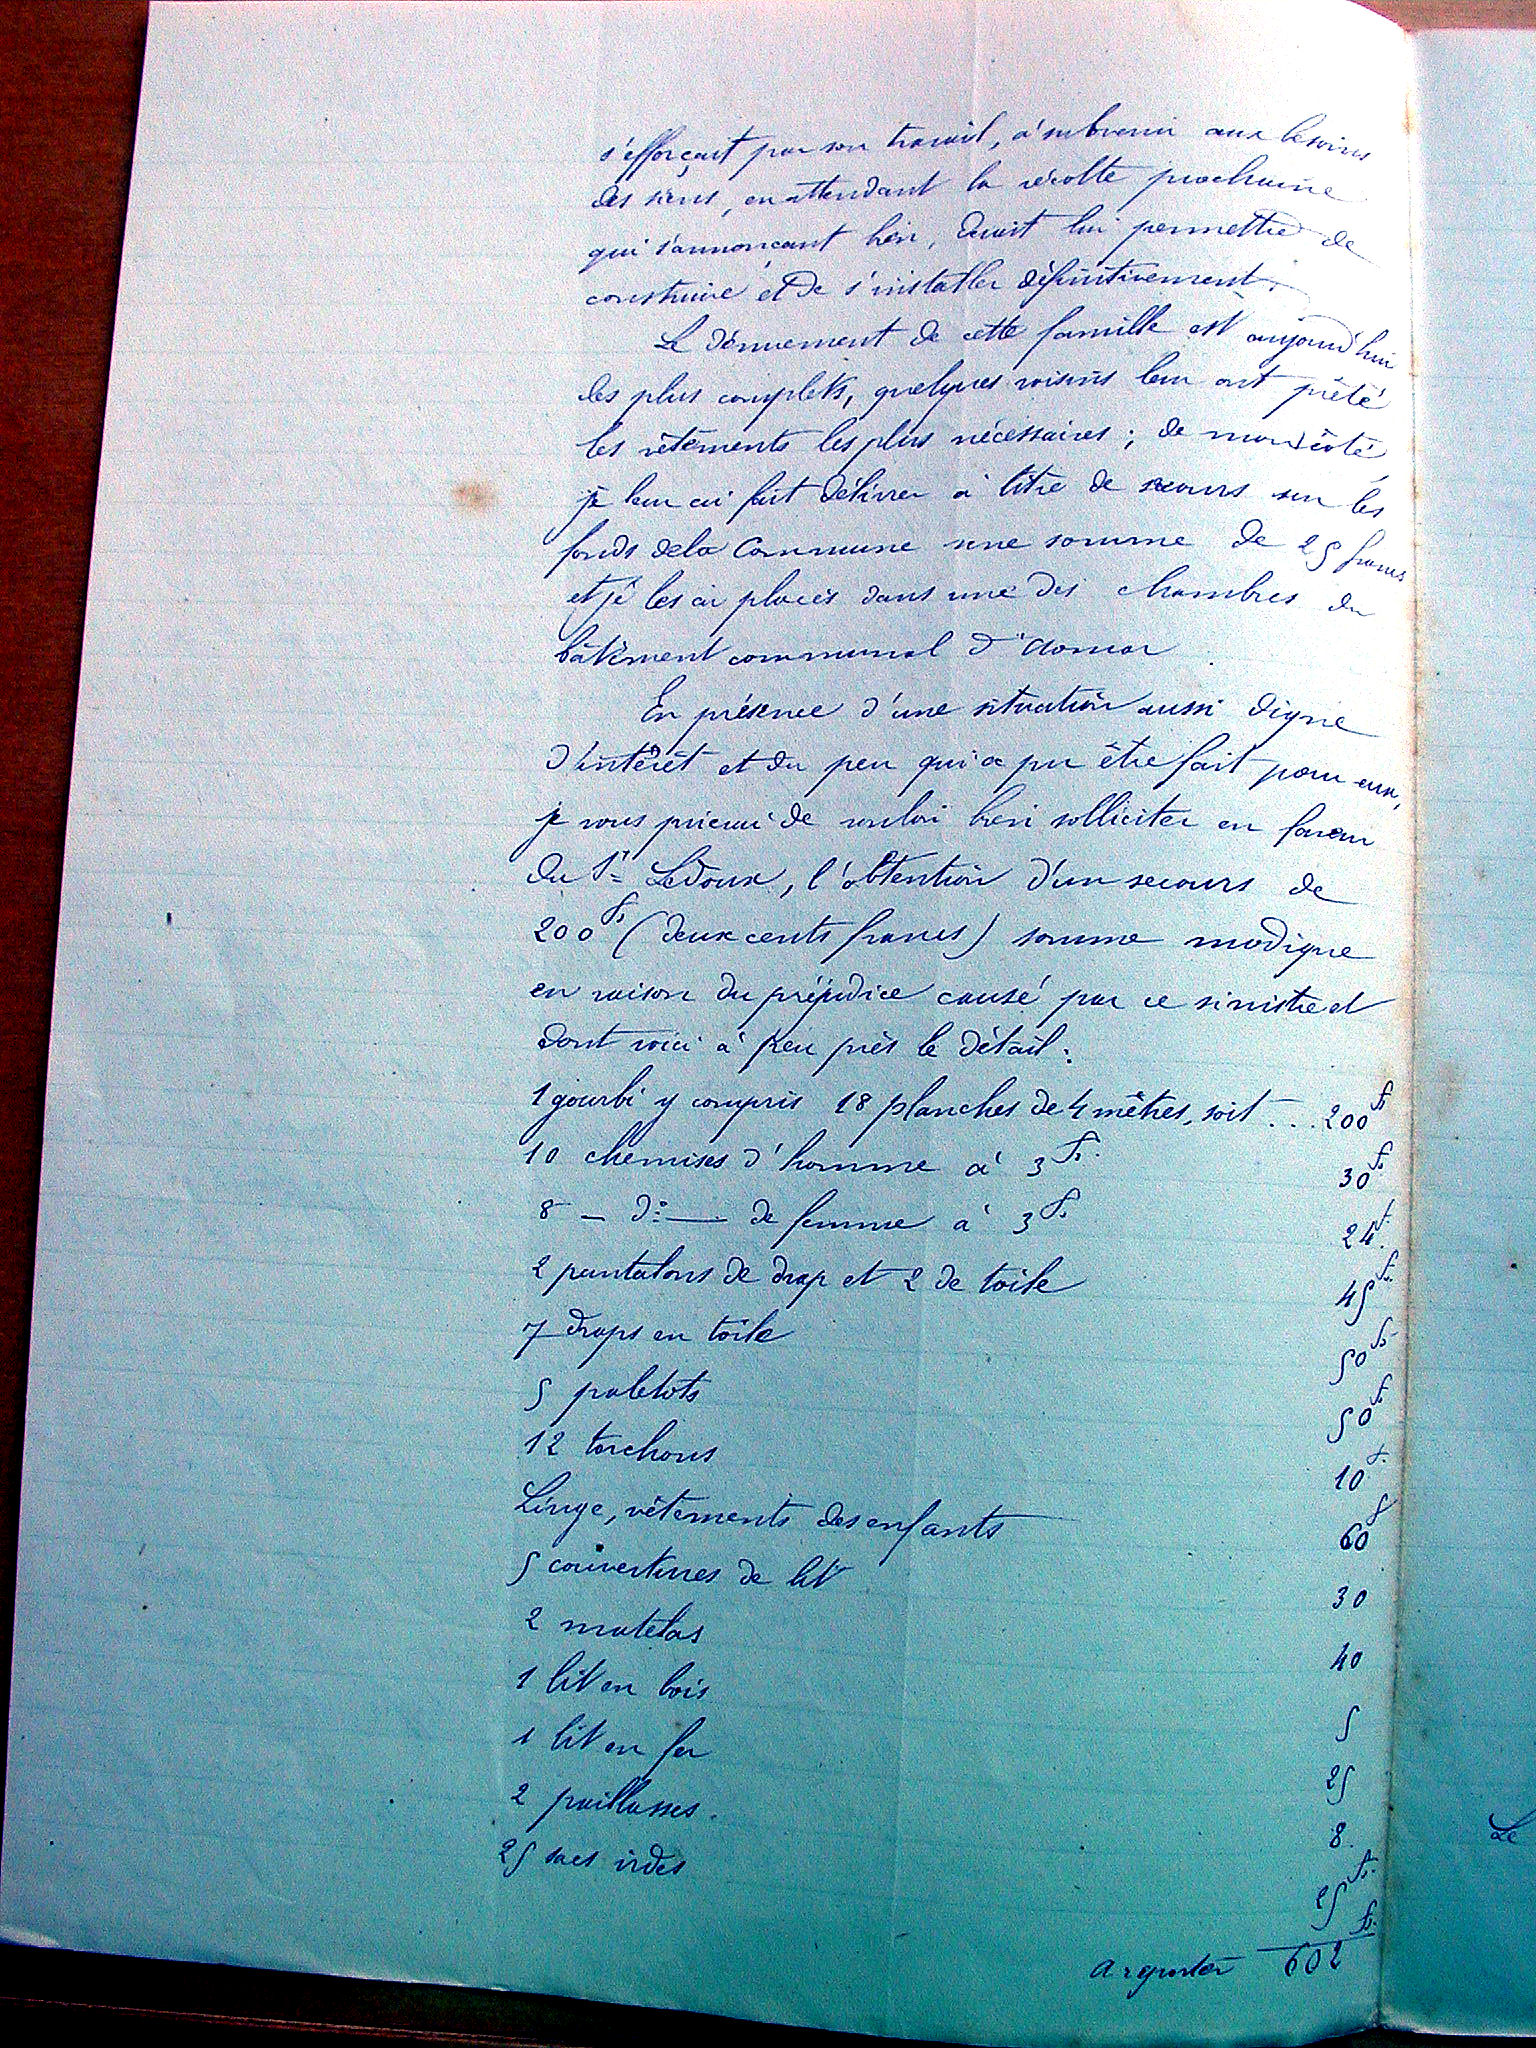 s'efforçait par son travail, à subvenir aux besoins
des siens, en attendant la récolte prochaine
qui s'annonçant bien, devait lui permettre de
construire et de s'installer définitivement.
Le dénuement de cette famille est aujourd'hui
des plus complets, quelques voisins leur ont prêté
les vêtements les plus nécessaires ; de mon côté
je leur ai fait délivrer à titre de secours sur les
fonds de la Commune une somme de 25 francs
et je les ai placés dans une des chambres du
bâtiment communal d'Aomar
En présence d'une situation aussi digne
d'intérêt et du peu qui a pu être fait pour eux,
je vous prierai de vouloir bien solliciter en faveur
du Sr Ledoux, l'obtention d'un secours de
200 fs (deux cents francs) somme modique
en raison du préjudice causé par ce sinistre et
dont voici à peu près le détail :
1 gourbi y compris 18 planches de 4 mètres, soit ... 200 fs
10 chemises d'homme à 3 fs. 30 fs
8 — do — de femme à 3 fs 24 f.
2 pantalons de drap et 2 de toile 45 fs
7 draps en toile 50 fs
5 paletots 50 fs
12 torchons 10 f.
Linge, vêtements des enfants 60 f
5 couvertures de lit 30
2 matelas 40
1 lit en bois 5
1 lit en fer 25
2 paillasses. 8.
25 sacs vides 25 fs.
A reporter 602 fs.
Le